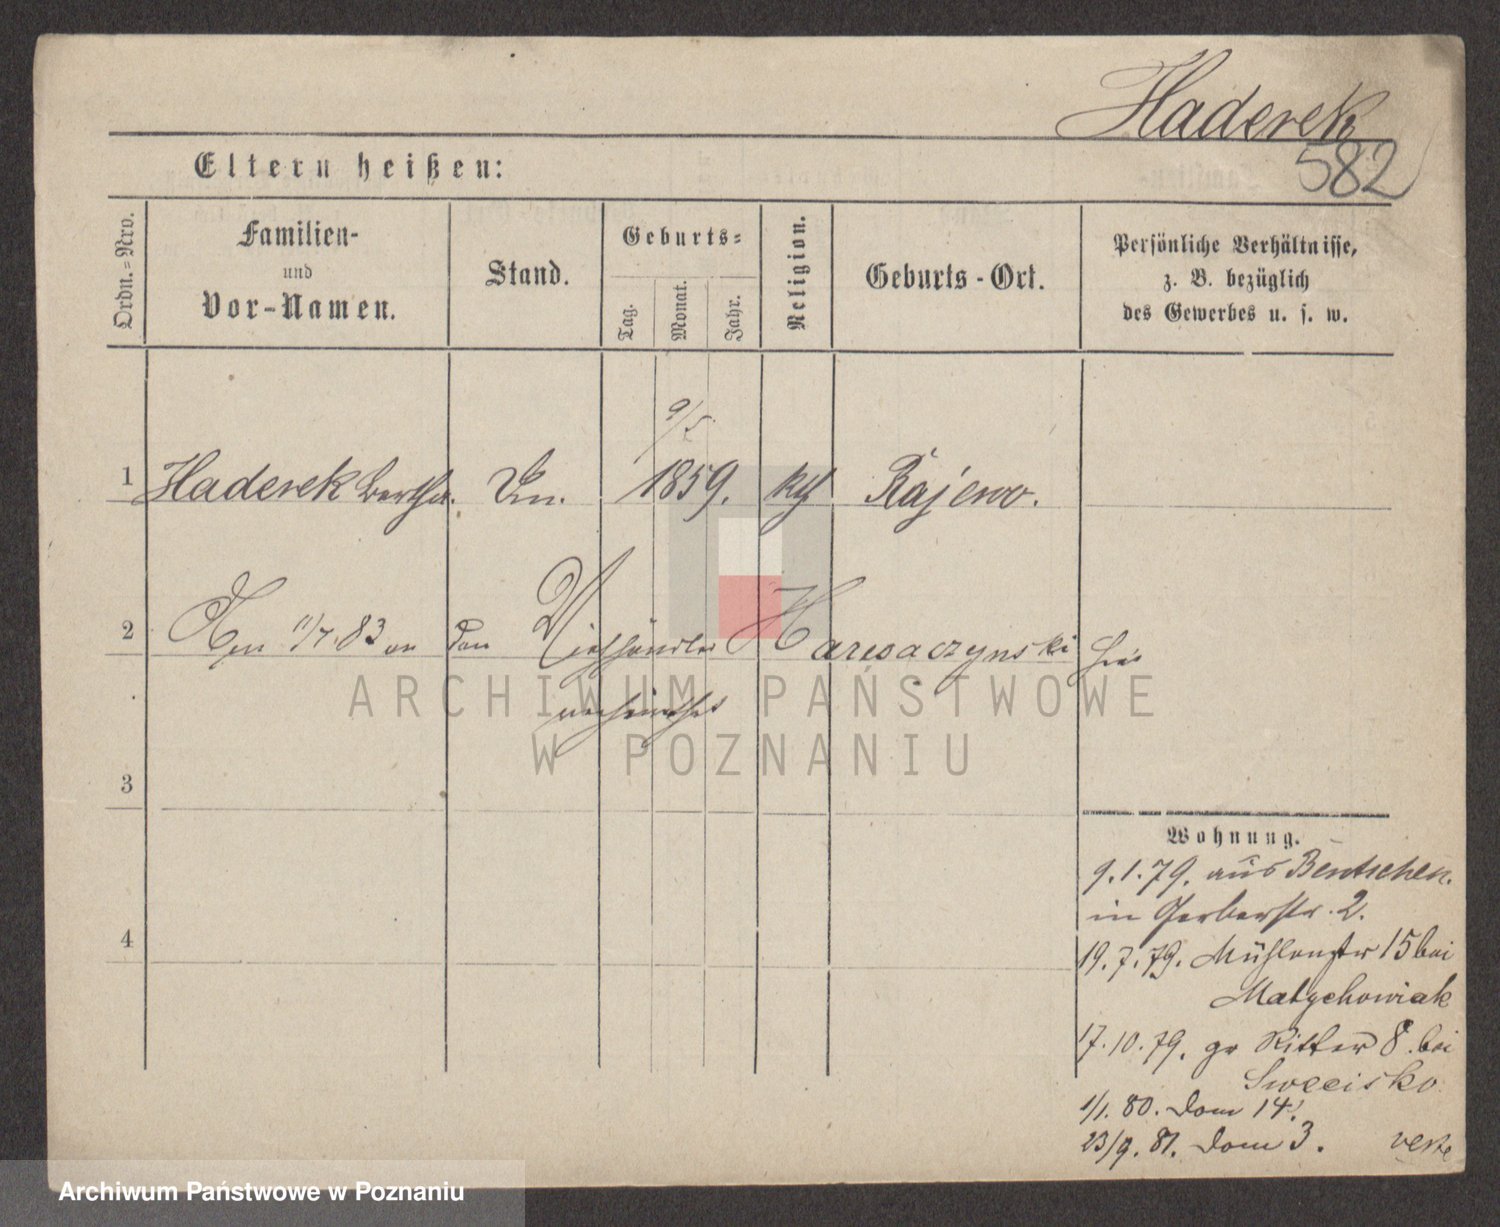 Haderek
582
Eltern heißen:
Ordn.=Nro.
Familien-
und
Vor-Namen.
Stand.
Geburts=
Tag.
Monat.
Jahr.
Religion.
Geburts-Ort.
Persönliche Verhältnisse,
z. B. bezüglich
des Gewerbes u. s. w.
9/5
1 Haderek Bertha. Un. 1859. kth Rajewo.
2 11/7. 83 an den Viehhändler Harwaczynski hier
verheirathet
ARCHIWUM PAŃSTWOWE
W POZNANIU
3
Wohnung.
9.1.79. aus Bentschen.
in Gerberstr. 2.
4
19.7.79. Mühlenstr 15 bei
Matychowiak
17.10.79. gr Ritter 8. bei
Swecisko
1/1. 80. Dom 14.
23/9. 81. Dom 3. verte
Archiwum Państwowe w Poznaniu